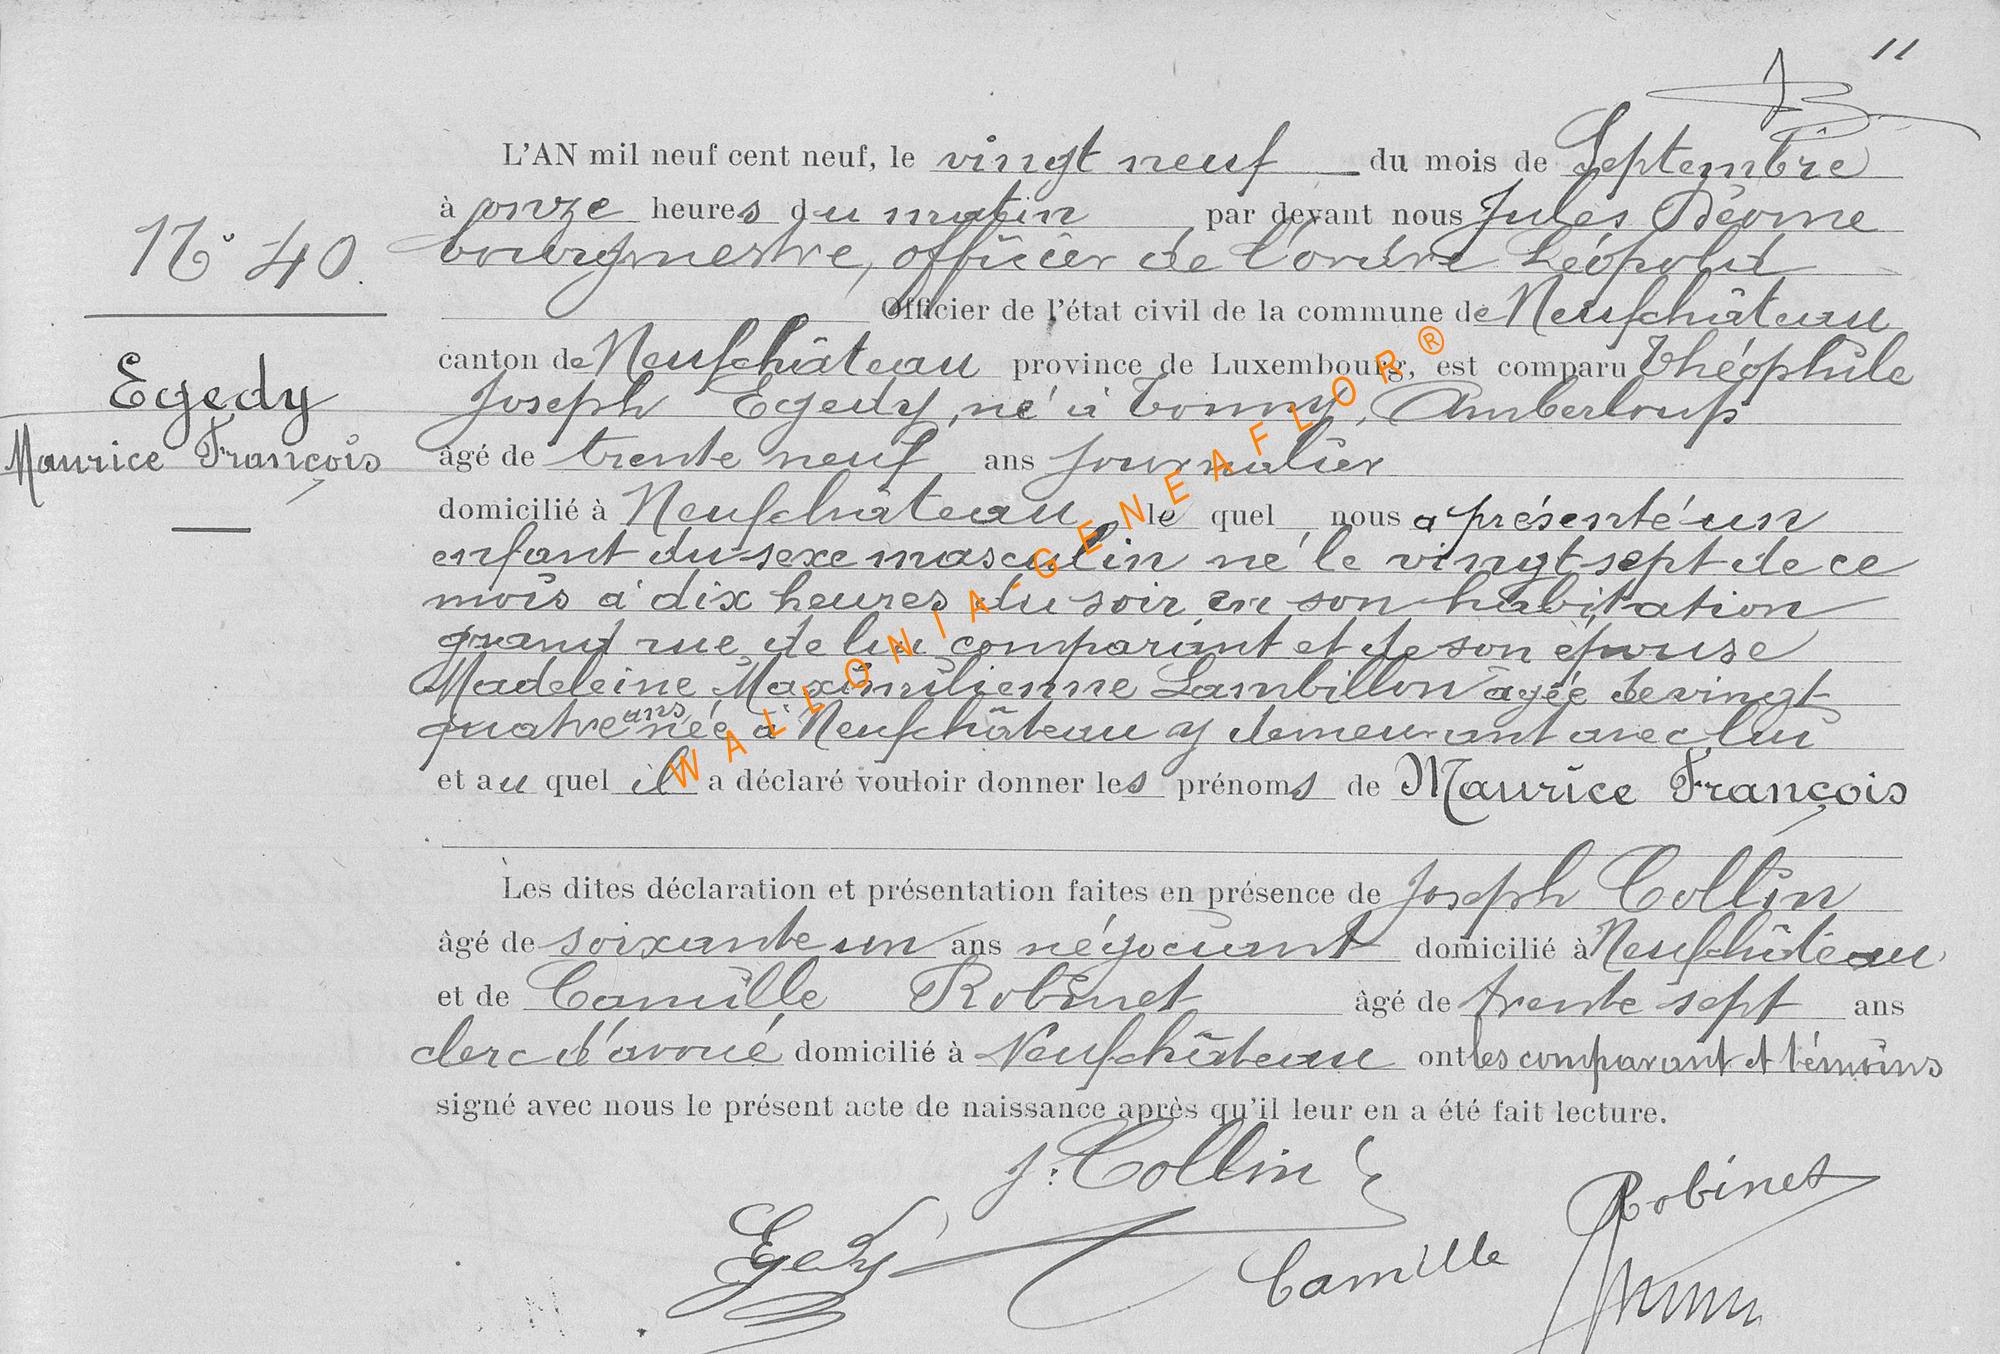 11
L'AN mil neuf cent neuf, le vingt neuf du mois de Septembre
à onze heures du matin par devant nous Jules
N° 40. bourgmestre, officier de l'ordre Léopold
Officier de l'état civil de la commune de Neufchâteau
canton de Neufchâteau province de Luxembourg, est comparu Théophile
Egedy
Joseph Egedy, né à Tonny, Amberloup
Maurice François
âgé de trente neuf ans journalier
domicilié à Neufchâteau, le quel nous a présenté un
enfant du sexe masculin né le vingt sept de ce
mois à dix heures du soir en son habitation
grand rue, de lui comparant et de son épouse
Madeleine Maximilienne Lambillon âgée de vingt
quatre ans née à Neufchâteau y demeurant avec lui
et au quel il a déclaré vouloir donner les prénoms de Maurice François
Les dites déclaration et présentation faites en présence de Joseph Collin
âgé de soixante un ans négociant domicilié à Neufchâteau
et de Camille Robinet âgé de trente sept ans
clerc d'avoué domicilié à Neufchâteau ont les comparant et témoins
signé avec nous le présent acte de naissance après qu'il leur en a été fait lecture.
J. Collin
Egedy
Camille Robinet
WALLONIA-GENEAFLOR®